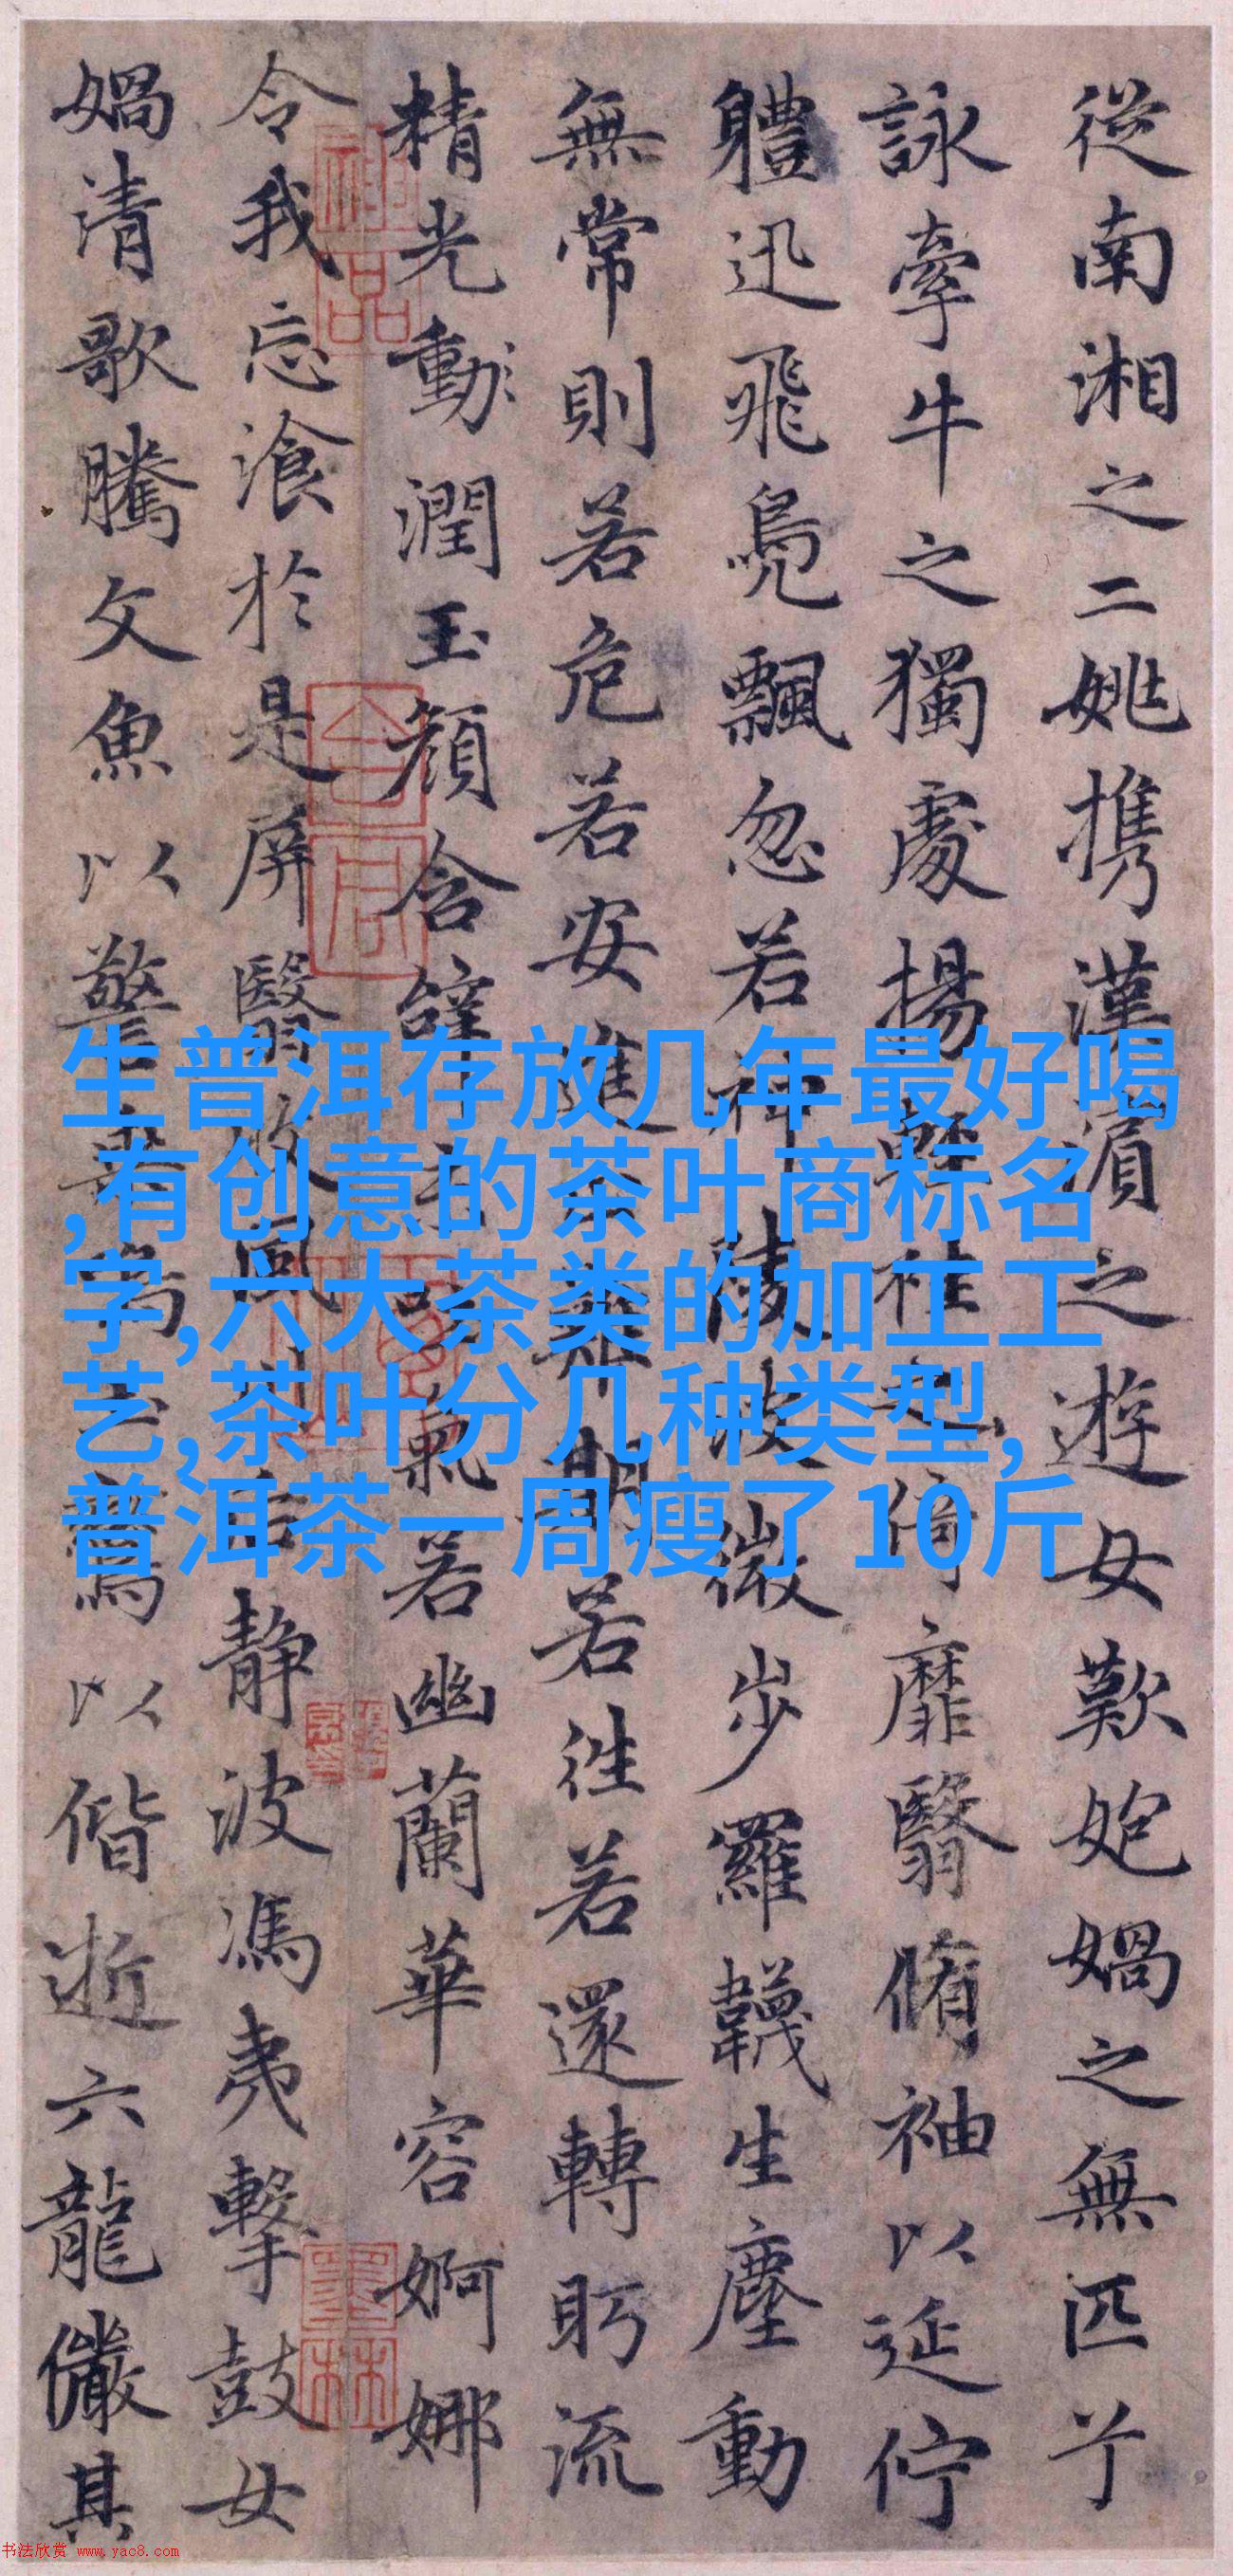 從南湘之二姚携漢濱之遊女歎媧之無匹兮
詠牽牛之獨處揚輕袿之倚靡翳脩袖以延佇
軆迅飛鳧飄忽若神陵波微步羅韈生塵動
無常則若危若安進止難期若往若還轉眄流
精光動潤玉顏含辭未吐氣若幽蘭華容婀娜
令我忘湌於是屏翳收風川后靜波馮夷擊鼓女
媧清歌騰文魚以警乘鳴玉鸞以偕逝六龍儼其
神品
墨林
生普洱存放几年最好喝
,有创意的茶叶商标名
字,六大茶类的加工工
艺,茶叶分几种类型,
普洱茶一周瘦了10斤
书法欣赏 www.yac8.com